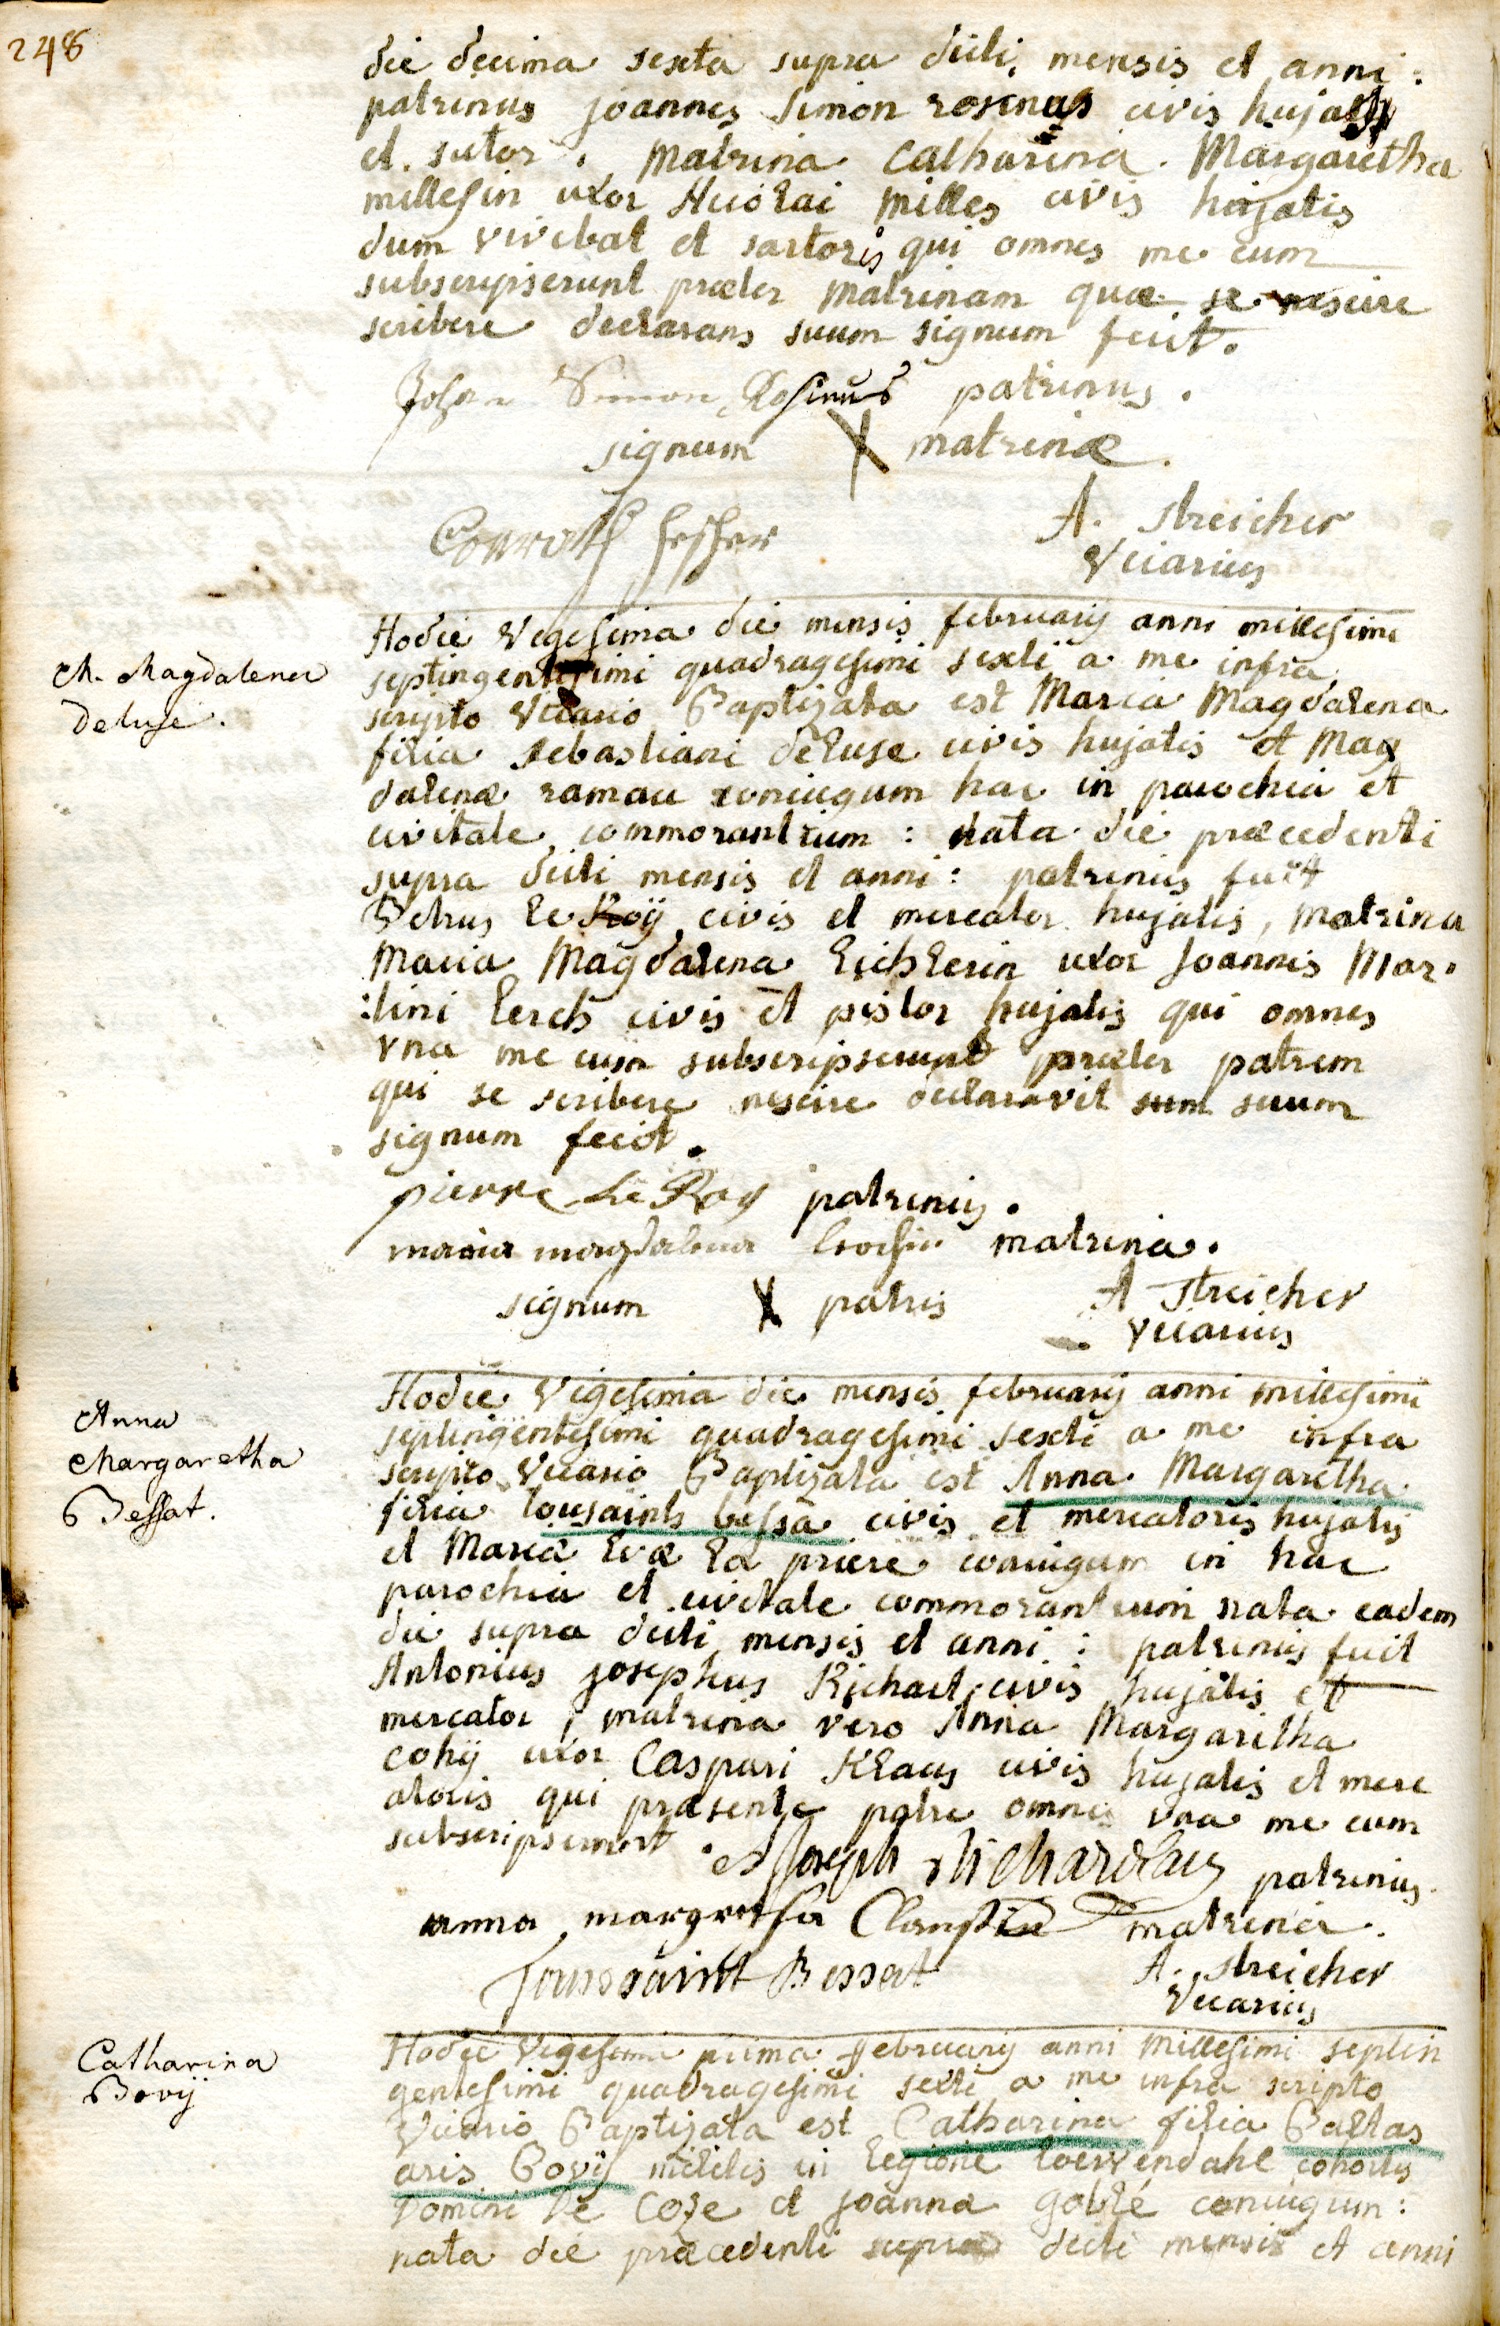 248
die decima sexta supra dicti mensis et anni :
patrinus joannes simon rosinus civis hujatis
et sutor . Matrina Catharina . Margaretha
millesin uxor Nicolai Milles civis hujatis
dum vivebat et sartoris qui omnes me cum
subscripserunt præter Matrinam quæ se nescire
scribere declarans suum signum fecit .
Johan Simon Rosinus patrinus .
signum X matrinæ .
A. Streicher
Vicarius
Hodie Vigesima die mensis februarij anni millesimi
septingentesimi quadragesimi sexti a me infra
M. Magdalena
Deluse .
scripto Vicario Baptizata est Maria Magdalena
filia sebastiani deluse civis hujatis et Mag
dalenæ ramau coniugum hac in parochia et
civitate commorantium : nata die præcedenti
supra dicti mensis et anni : patrinus fuit
Petrus le Roÿ civis et mercator hujatis , Matrina
Maria Magdalena Eichlerin uxor Joannis Mar
:tini lerch civis et pistor hujatis qui omnes
vna me cum subscripserunt præter patrem
qui se scribere nescire declaravit sum suum
signum fecit .
pierre Le Roy patrinus .
maria magdalena matrina .
signum X patris A Streicher
Vicarius
Hodie Vigesima die mensis februarij anni millesimi
septingentesimi quadragesimi sexti a me infra
Anna
Margaretha
Bessat .
scripto Vicario Baptizata est Anna Margaretha
filia tousaints bessa civis et mercatoris hujatis
et Mariæ Evæ la priere coniugum in hac
parochia et civitate commorantium nata eadem
die supra dicti mensis et anni : patrinus fuit
Antonius josephus Richard civis hujatis et
mercator , matrina vero Anna Margaritha
cohÿ uxor Caspari Klaus civis hujatis et merc
atoris qui præsente patre omnes vna me cum
subscripserunt .
Joseph patrinus .
anna margretha matrina .
Toussaint Bessat A. Streicher
Vicarius
Hodie Vigesima prima februarij anni Millesimi septin
gentesimi quadragesimi sexti a me infra scripto
Catharina
Bovÿ
Vicario Baptizata est Catharina filia Baltas
aris Bovÿ militis in legione loewendahl cohortis
Domini De Coze et joanna gobté coniugum :
nata die præcedenti supra dicti mensis et anni